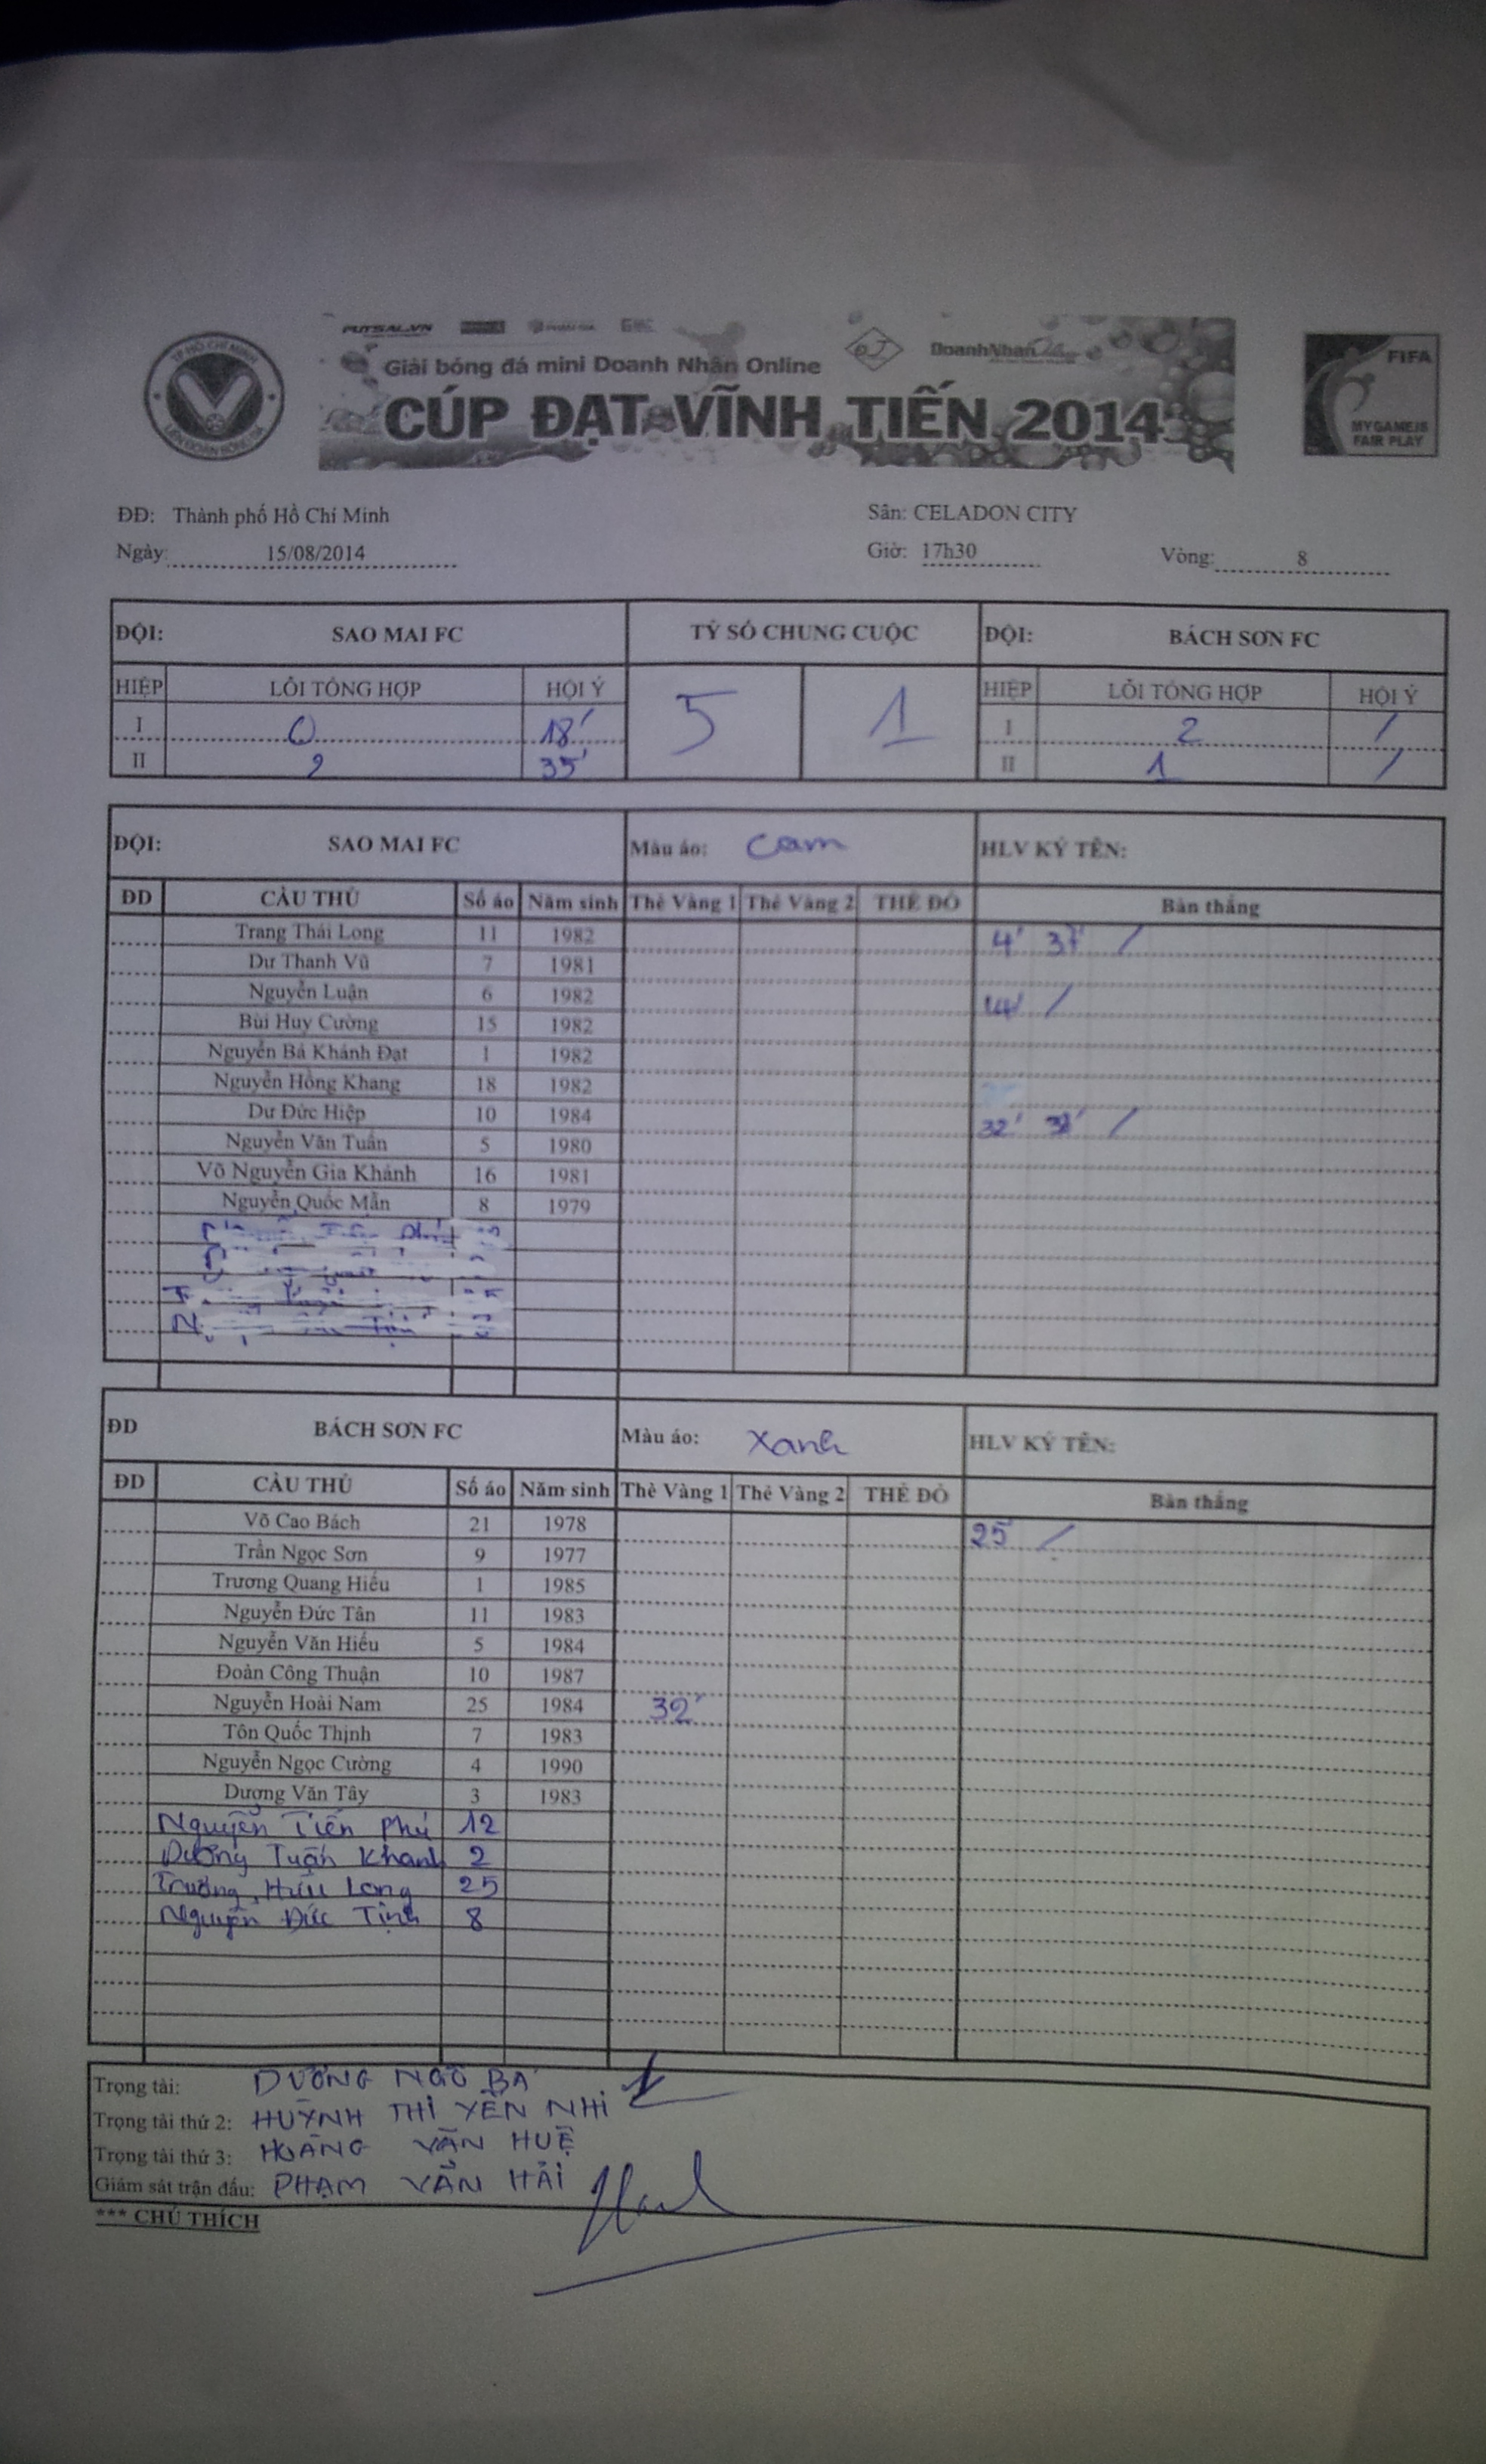 FUTSAL.VN
TP HỒ CHÍ MINH
LIÊN ĐOÀN BÓNG ĐÁ
Giải bóng đá mini Doanh Nhân Online
DoanhNhan
CÚP ĐẠT VĨNH TIẾN 2014
FIFA
MY GAME IS
FAIR PLAY
ĐĐ: Thành phố Hồ Chí Minh Sân: CELADON CITY
Ngày: 15/08/2014 Giờ: 17h30 Vòng: 8
ĐỘI: SAO MAI FC TỶ SỐ CHUNG CUỘC ĐỘI: BÁCH SƠN FC
HIỆP LỖI TỔNG HỢP HỘI Ý 5 1 HIỆP LỖI TỔNG HỢP HỘI Ý
I 0 18' I 2 /
II 2 35' II 1 /
ĐỘI: SAO MAI FC Màu áo: Cam HLV KÝ TÊN:
ĐD CẦU THỦ Số áo Năm sinh Thẻ Vàng 1 Thẻ Vàng 2 THẺ ĐỎ Bàn thắng
Trang Thái Long 11 1982 4' 37' /
Dư Thanh Vũ 7 1981
Nguyễn Luận 6 1982 /
Bùi Huy Cường 15 1982
Nguyễn Bá Khánh Đạt 1 1982
Nguyễn Hồng Khang 18 1982
Dư Đức Hiệp 10 1984 32' /
Nguyễn Văn Tuấn 5 1980
Võ Nguyễn Gia Khánh 16 1981
Nguyễn Quốc Mẫn 8 1979
ĐD BÁCH SƠN FC Màu áo: Xanh HLV KÝ TÊN:
ĐD CẦU THỦ Số áo Năm sinh Thẻ Vàng 1 Thẻ Vàng 2 THẺ ĐỎ Bàn thắng
Võ Cao Bách 21 1978 25 /
Trần Ngọc Sơn 9 1977
Trương Quang Hiếu 1 1985
Nguyễn Đức Tân 11 1983
Nguyễn Văn Hiếu 5 1984
Đoàn Công Thuận 10 1987
Nguyễn Hoài Nam 25 1984 32'
Tôn Quốc Thịnh 7 1983
Nguyễn Ngọc Cường 4 1990
Dương Văn Tây 3 1983
Nguyễn Tiến Phú 12
Dương Tuấn Khanh 2
Trương Hữu Long 25
Nguyễn Đức Tịnh 8
Trọng tài: DƯƠNG NGÔ BA
Trọng tài thứ 2: HUỲNH THỊ YẾN NHI
Trọng tài thứ 3: HOÀNG VĂN HUỆ
Giám sát trận đấu: PHẠM VĂN HẢI
*** CHÚ THÍCH